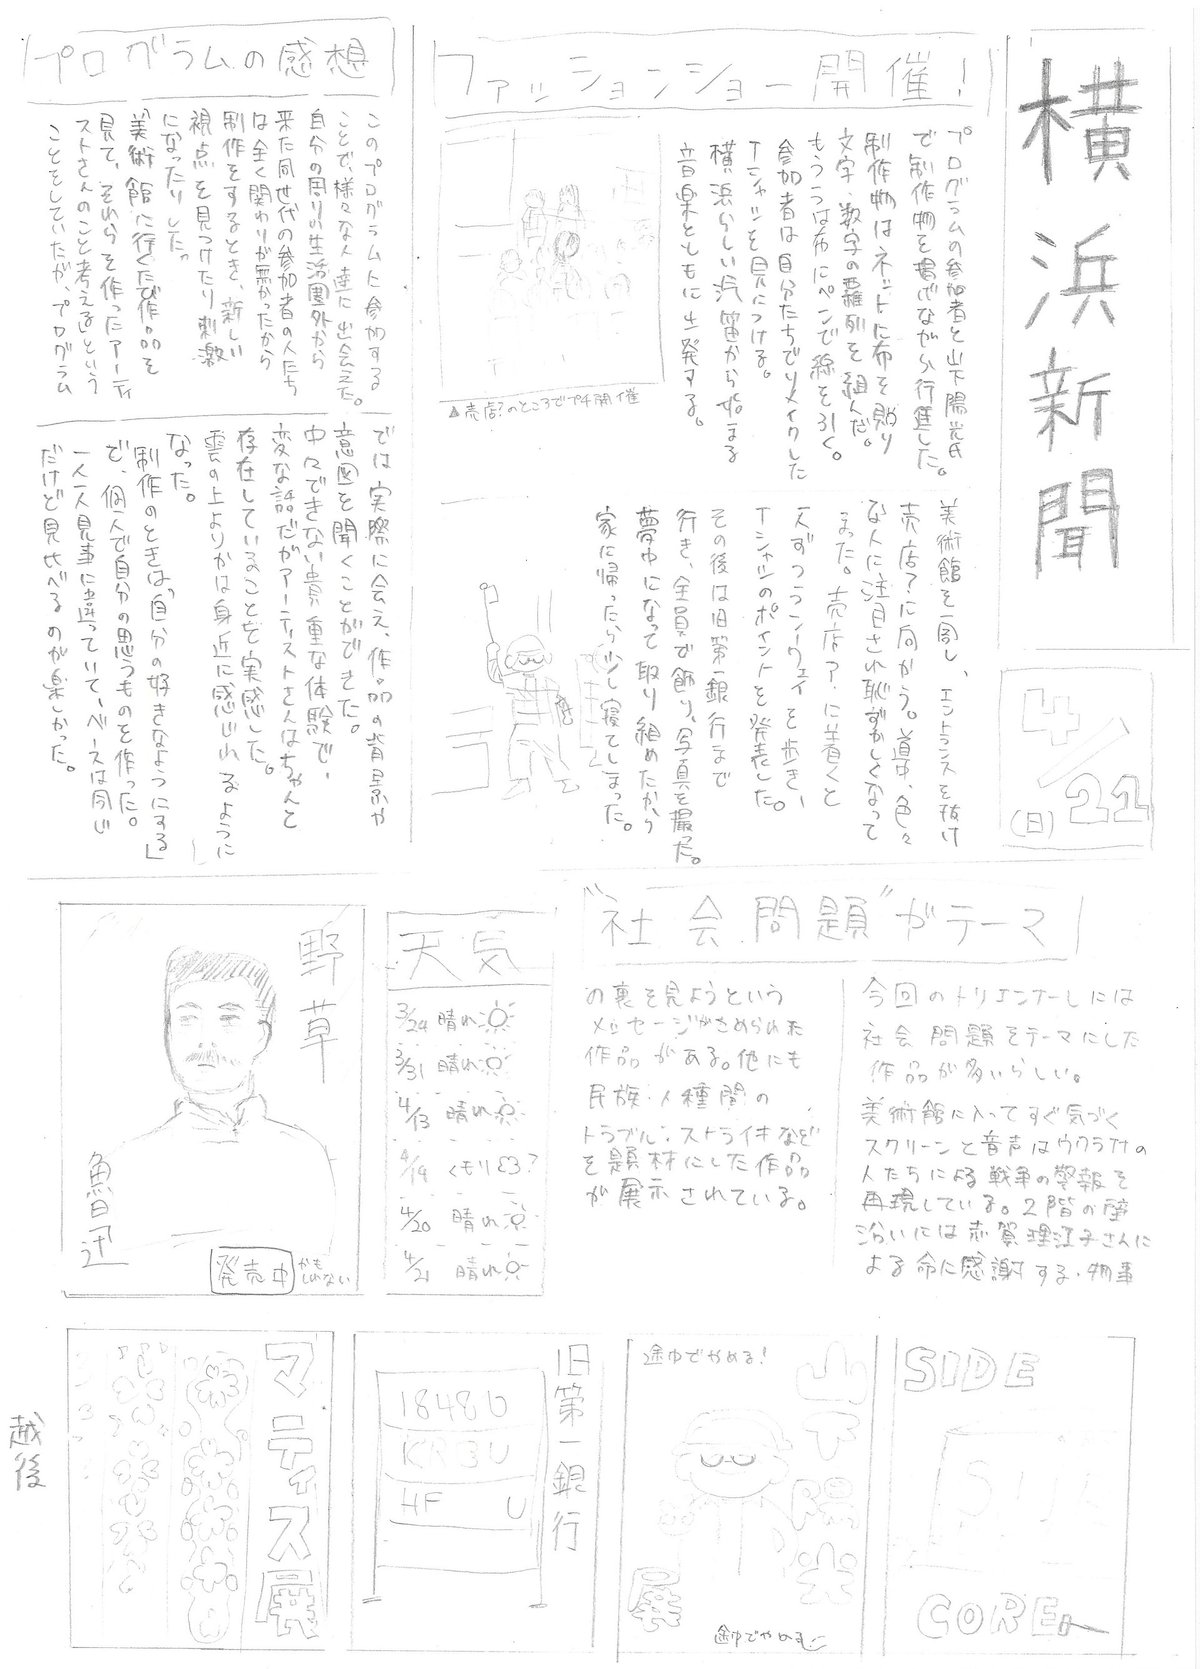 横浜新聞
4/21
(日)
ファッションショー開催!
プログラムの参加者と山下陽光氏
で制作物を掲げながら行進した。
制作物はネットに布を貼り
文字・数字の羅列を組んだ。
もう1つは布にペンで線を引く。
参加者は自分たちでリメイクした
Tシャツを身につける。
横浜らしい汽笛から始まる
音楽とともに出発する。
▲売店?のところでプチ開催
美術館を一周し、エントランスを抜け
売店?に向かう。道中、色々
な人に注目され恥ずかしくなって
しまった。売店?に着くと
一人ずつランウェイを歩き、
Tシャツのポイントを発表した。
その後は旧第一銀行まで
行き、全員で飾り、写真を撮った。
夢中になって取り組めたから
家に帰ったら少し寝てしまった。
プログラムの感想
このプログラムに参加する
ことで、様々な人達に出会えた。
自分の周りの生活圏外から
来た同世代の参加者の人たち
は全く関わりが無かったから
制作をするとき、新しい
視点を見つけたり刺激
になったりした。
「美術館に行くたび作品を
見て、それらを作ったアーティ
ストさんのこと考える」という
ことをしていたが、プログラム
では実際に会え、作品の背景や
意図を聞くことができた。
中々できない貴重な体験で、
変な話だがアーティストさんはちゃんと
存在していることを実感した。
雲の上よりかは身近に感じれるように
なった。
制作のときは「自分の好きなようにする」
で、個人で自分の思うものを作った。
一人一人見事に違っていて、ベースは同じ
だけど見比べるのが楽しかった。
“社会問題”がテーマ
今回のトリエンナーレには
社会問題をテーマにした
作品が多いらしい。
美術館に入ってすぐ気づく
スクリーンと音声はウクライナの
人たちによる戦争の警報を
再現している。2階の壁
沿いには志賀理江子さんに
よる命に感謝する・物事
の裏を見ようという
メッセージがこめられた
作品がある。他にも
民族・人種間の
トラブル・ストライキなど
を題材にした作品
が展示されている。
天気
3/24 晴れ
3/31 晴れ
4/13 晴れ
4/19 くもり?
4/20 晴れ
4/21 晴れ
野草
魯迅
発売中
かも
しれない
SIDE
CORE
途中でやめる!
山下陽光
展
途中でやめる
旧第一銀行
1848U
KR3U
HF U
マティス展
越後